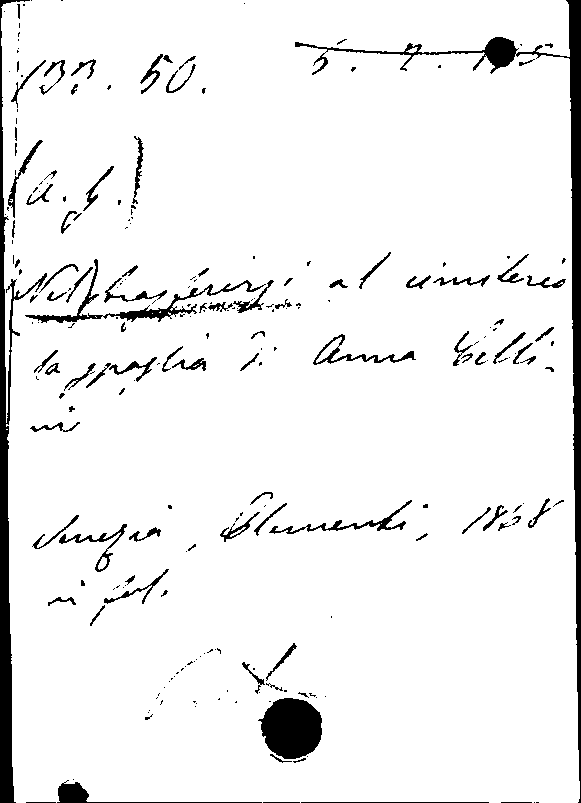 133. 50.
(a. g.)
(Nel) trasferirsi al cimiterio
la spoglia di Anna Celli-
ni
Venezia, Clementi, 1868
in fol.